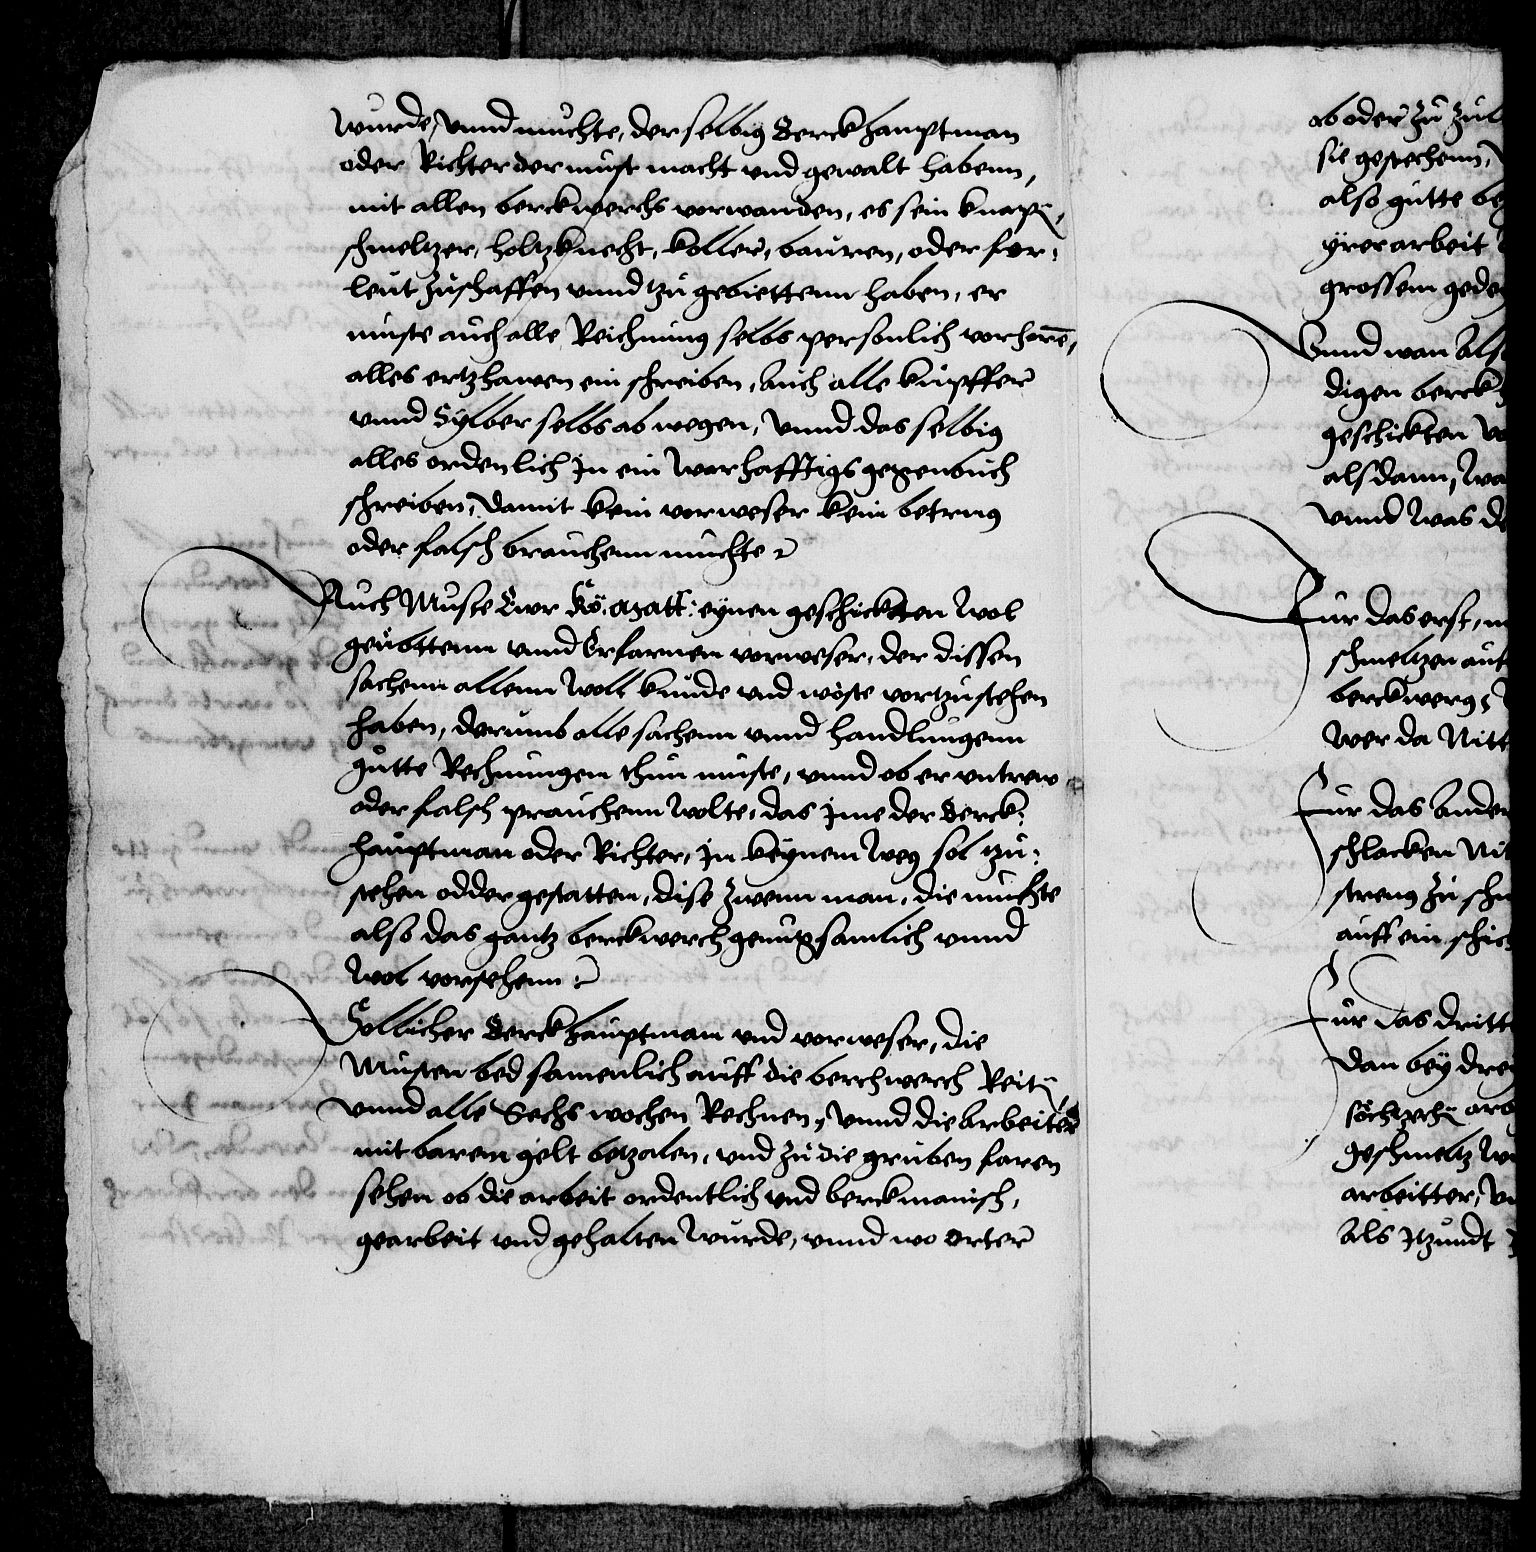 wurde, vnnd muchte, der selbig Berckhauptman
oder Richter der must macht vnd gewalt habenn,
mit allen berckwerchs vorwanden, es sein knapē,
schmeltzer, holtzknecht, koller, bauren, oder fer:
leut zuschaffen vnnd tzu gebiettenn haben, er
muste auch alle Reichnung selbs personlich vorhorē,
alles ertzhawen ein schreiben, Auch alle kupffer
vnnd Sylber selbs ab wegen, Vnnd das selbig
alles ordenlich Jn ein warhafftigs gegenbuch
schreiben, damit kein vorweser kein betrug
oder falsch brauchenn muchte
Auch Muste Ewr Kö. Matt: eynen geschickten wol
geubttenn vnnd Erfarnen vorweser, der dissen
sachenn allenn woll kunde vnd wöste vortzustehen
haben, derumb alle sachenn vnnd handlungenn
gutte Rechnungen thun muste, vnnd ob er vntrew
oder falsch prauchenn wolte, das Jme der Berck:
hauptman oder Richter, Jn keynem weg sol tzu:
sehen odder gestatten, dise zwenn man, die muchte
also das gantz berckwerch genugsamlich vnnd
wol vorsehenn
Sollicher Berckhauptman vnd vorweser, die
Musten bed samenlich auff die berchwerch Reitē,
vnnd alle Sechs wochen Rechnen, Vnnd die Arbeiter
mit barem gelt betzalen, vnd zu die gruben faren
sehen ob die arbeit ordentlich vnd berckmanisch,
gearbeit vnd gehalten wurde, vnnd wo Erter
ab oder zu
sie gestehenn,
also gutte
yrer arbeit
grossem
Vnnd wan
digen berck
geschickten
alsdann,
vnnd was
Fur das erst,
schmeltzen
berckwergs
wer da Nitt
Fur das Ander
schlacken
streng zu
auff ein
Fur das dritt
dan bey

geschmeltz
arbeitter,
Als Jtzundt